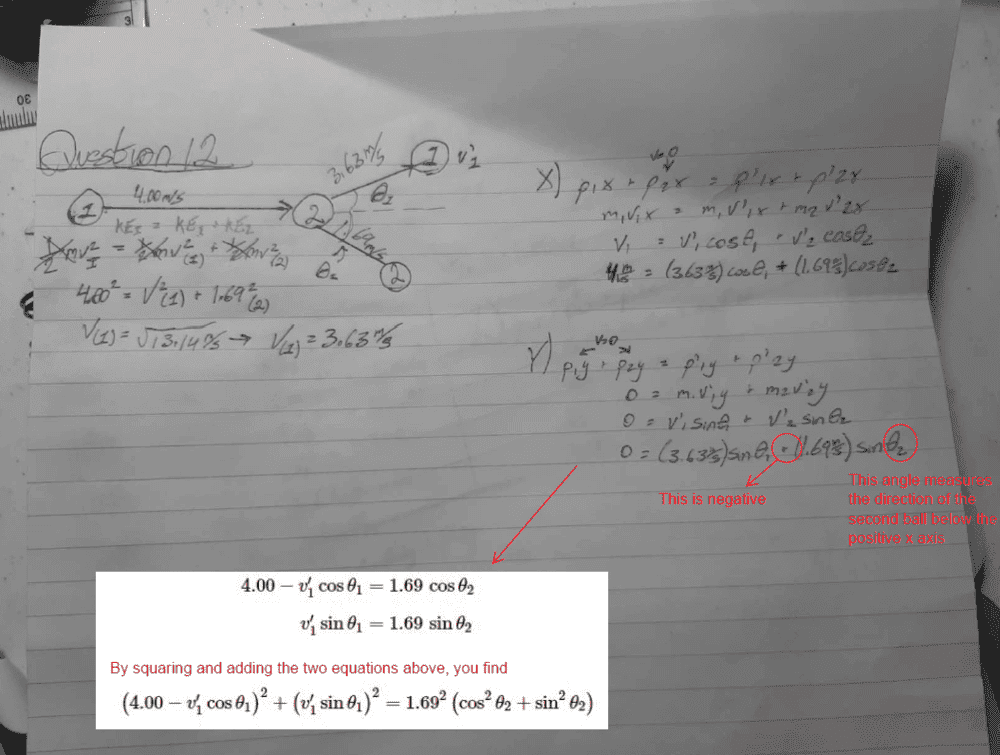 3
30
Question 12
3.63 m/s
1 v'1
4.00 m/s
1
2
θ1
1.69 m/s
θ2
2
KE1 = KE1 + KE2
1/2 mv²1 = 1/2 mv²(1) + 1/2 mv²(2)
4.00² = V²(1) + 1.69²(2)
V(1) = √13.14 m/s → V(1) = 3.63 m/s
X)
v=0
p1x + p2x = p'1x + p'2x
m1v1x = m1v'1x + m2v'2x
V1 = v'1 cosθ1 + v'2 cosθ2
4 m/s = (3.63 m/s) cosθ1 + (1.69 m/s) cosθ2
Y)
v=0
p1y + p2y = p'1y + p'2y
0 = m1v'1y + m2v'2y
0 = v'1 sinθ1 + v'2 sinθ2
0 = (3.63 m/s) sinθ1 + (1.69 m/s) sinθ2
This is negative
This angle measures
the direction of the
second ball below the
positive x axis
4.00 − v′1 cos θ1 = 1.69 cos θ2
v′1 sin θ1 = 1.69 sin θ2
By squaring and adding the two equations above, you find
(4.00 − v′1 cos θ1)² + (v′1 sin θ1)² = 1.69² (cos² θ2 + sin² θ2)